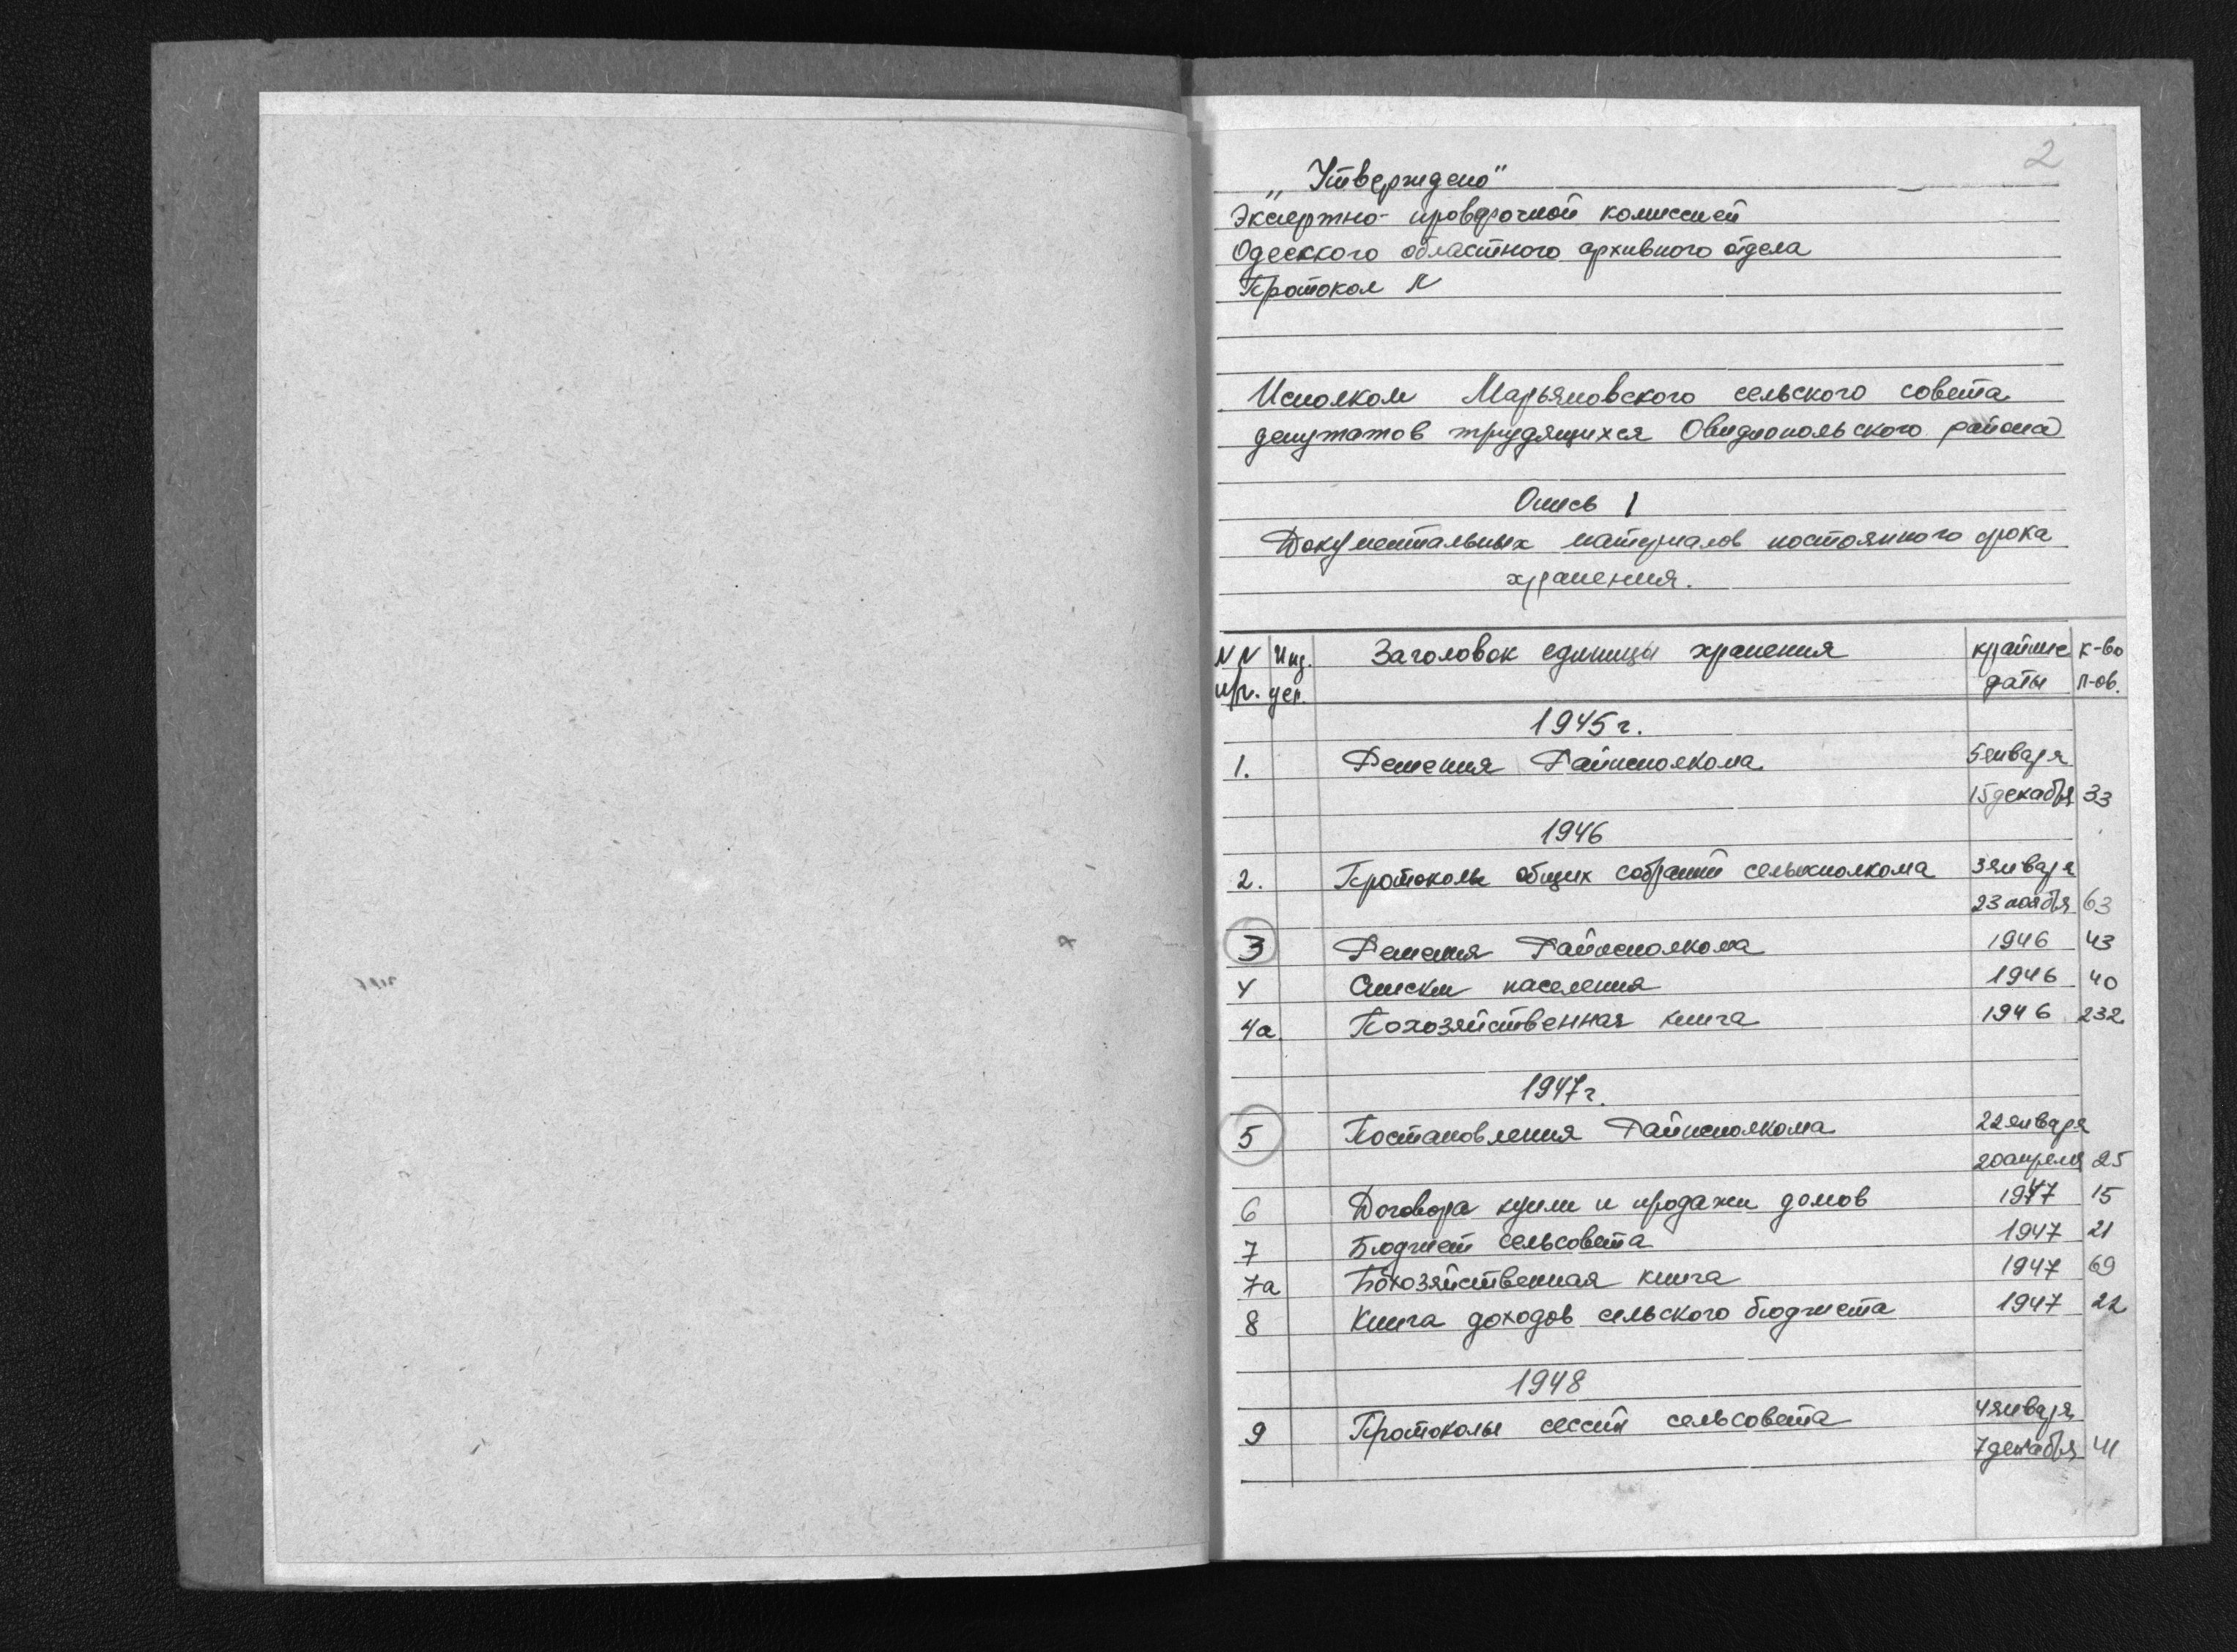 2
„Утверждено"
Экспертно-проверочной комиссией
Одесского областного архивного отдела
Протокол N
Исполком Марьяновского сельского совета
депутатов трудящихся Овидиопольского района
Опись 1
Документальных материалов постоянного срока
хранения.
N N Инд. Заголовок единицы хранения крайние к-во
п/п. дел. даты л-ов.
1945 г.
1. Решения Райисполкома 5 января
15 декабря 33
1946
2. Протоколы общих собраний сельисполкома 3 января
23 ноября 63
3 Решения Райисполкома 1946 43
4 Списки населения 1946 40
4а. Похозяйственная книга 1946 232
1947 г.
5 Постановления Райисполкома 22 января
20 апреля 25
6 Договора купли и продажи домов 1947 15
7 Бюджет сельсовета 1947 21
7а Похозяйственная книга 1947 69
8 Книга доходов сельского бюджета 1947 22
1948
9 Протоколы сессий сельсовета 4 января
7 декабря 41